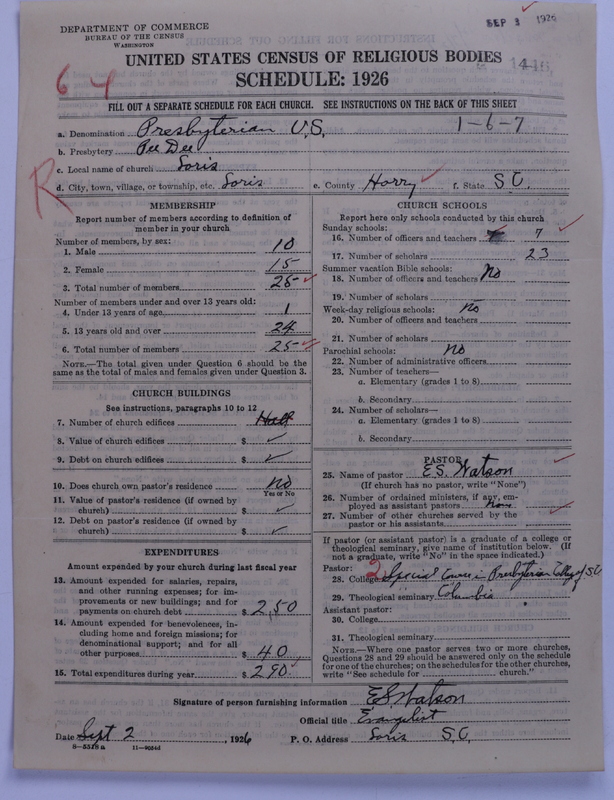 DEPARTMENT OF COMMERCE
BUREAU OF THE CENSUS
WASHINGTON
SEP 3 1926
UNITED STATES CENSUS OF RELIGIOUS BODIES
SCHEDULE: 1926
64
FILL OUT A SEPARATE SCHEDULE FOR EACH CHURCH. SEE INSTRUCTIONS ON THE BACK OF THIS SHEET
a. Denomination Presbyterian U.S. 1-6-7
b. Presbytery Pee Dee
c. Local name of church Loris
R
d. City, town, village, or township, etc. Loris e. County Horry f. State S.C.
MEMBERSHIP
Report number of members according to definition of member in your church
Number of members, by sex:
1. Male 10
2. Female 15
3. Total number of members 25
Number of members under and over 13 years old:
4. Under 13 years of age 1
5. 13 years old and over 24
6. Total number of members 25
NOTE.—The total given under Question 6 should be the
same as the total of males and females given under Question 3.
CHURCH BUILDINGS
See instructions, paragraphs 10 to 12
7. Number of church edifices Hall
8. Value of church edifices $
9. Debt on church edifices $
10. Does church own pastor's residence No
Yes or No
11. Value of pastor's residence (if owned by
church) $
12. Debt on pastor's residence (if owned by
church) $
EXPENDITURES
Amount expended by your church during last fiscal year
13. Amount expended for salaries, repairs,
and other running expenses; for im-
provements or new buildings; and for
payments on church debt $ 250
14. Amount expended for benevolences, in-
cluding home and foreign missions; for
denominational support; and for all
other purposes $ 40
15. Total expenditures during year $ 290
CHURCH SCHOOLS
Report here only schools conducted by this church
Sunday schools:
16. Number of officers and teachers 7
17. Number of scholars 23
Summer vacation Bible schools:
18. Number of officers and teachers No
19. Number of scholars
Week-day religious schools: No
20. Number of officers and teachers
21. Number of scholars
Parochial schools: No
22. Number of administrative officers
23. Number of teachers—
a. Elementary (grades 1 to 8)
b. Secondary
24. Number of scholars—
a. Elementary (grades 1 to 8)
b. Secondary
PASTOR
25. Name of pastor E.S. Watson
(If church has no pastor, write "None")
26. Number of ordained ministers, if any, em-
ployed as assistant pastors None
27. Number of other churches served by the
pastor or his assistants
If pastor (or assistant pastor) is a graduate of a college or
theological seminary, give name of institution below. (If
not a graduate, write "No" in the space indicated.)
Pastor: 2
28. College Special Course in Presbyterian College of S.C.
29. Theological seminary Columbia
Assistant pastor:
30. College
31. Theological seminary
NOTE.—Where one pastor serves two or more churches,
Questions 28 and 29 should be answered only on the schedule
for one of the churches; on the schedules for the other churches,
write "See schedule for church."
Signature of person furnishing information E S Watson
Official title Evangelist
Date Sept 2, 1926 P. O. Address Loris S.C.
8—5518 a 11—9054d